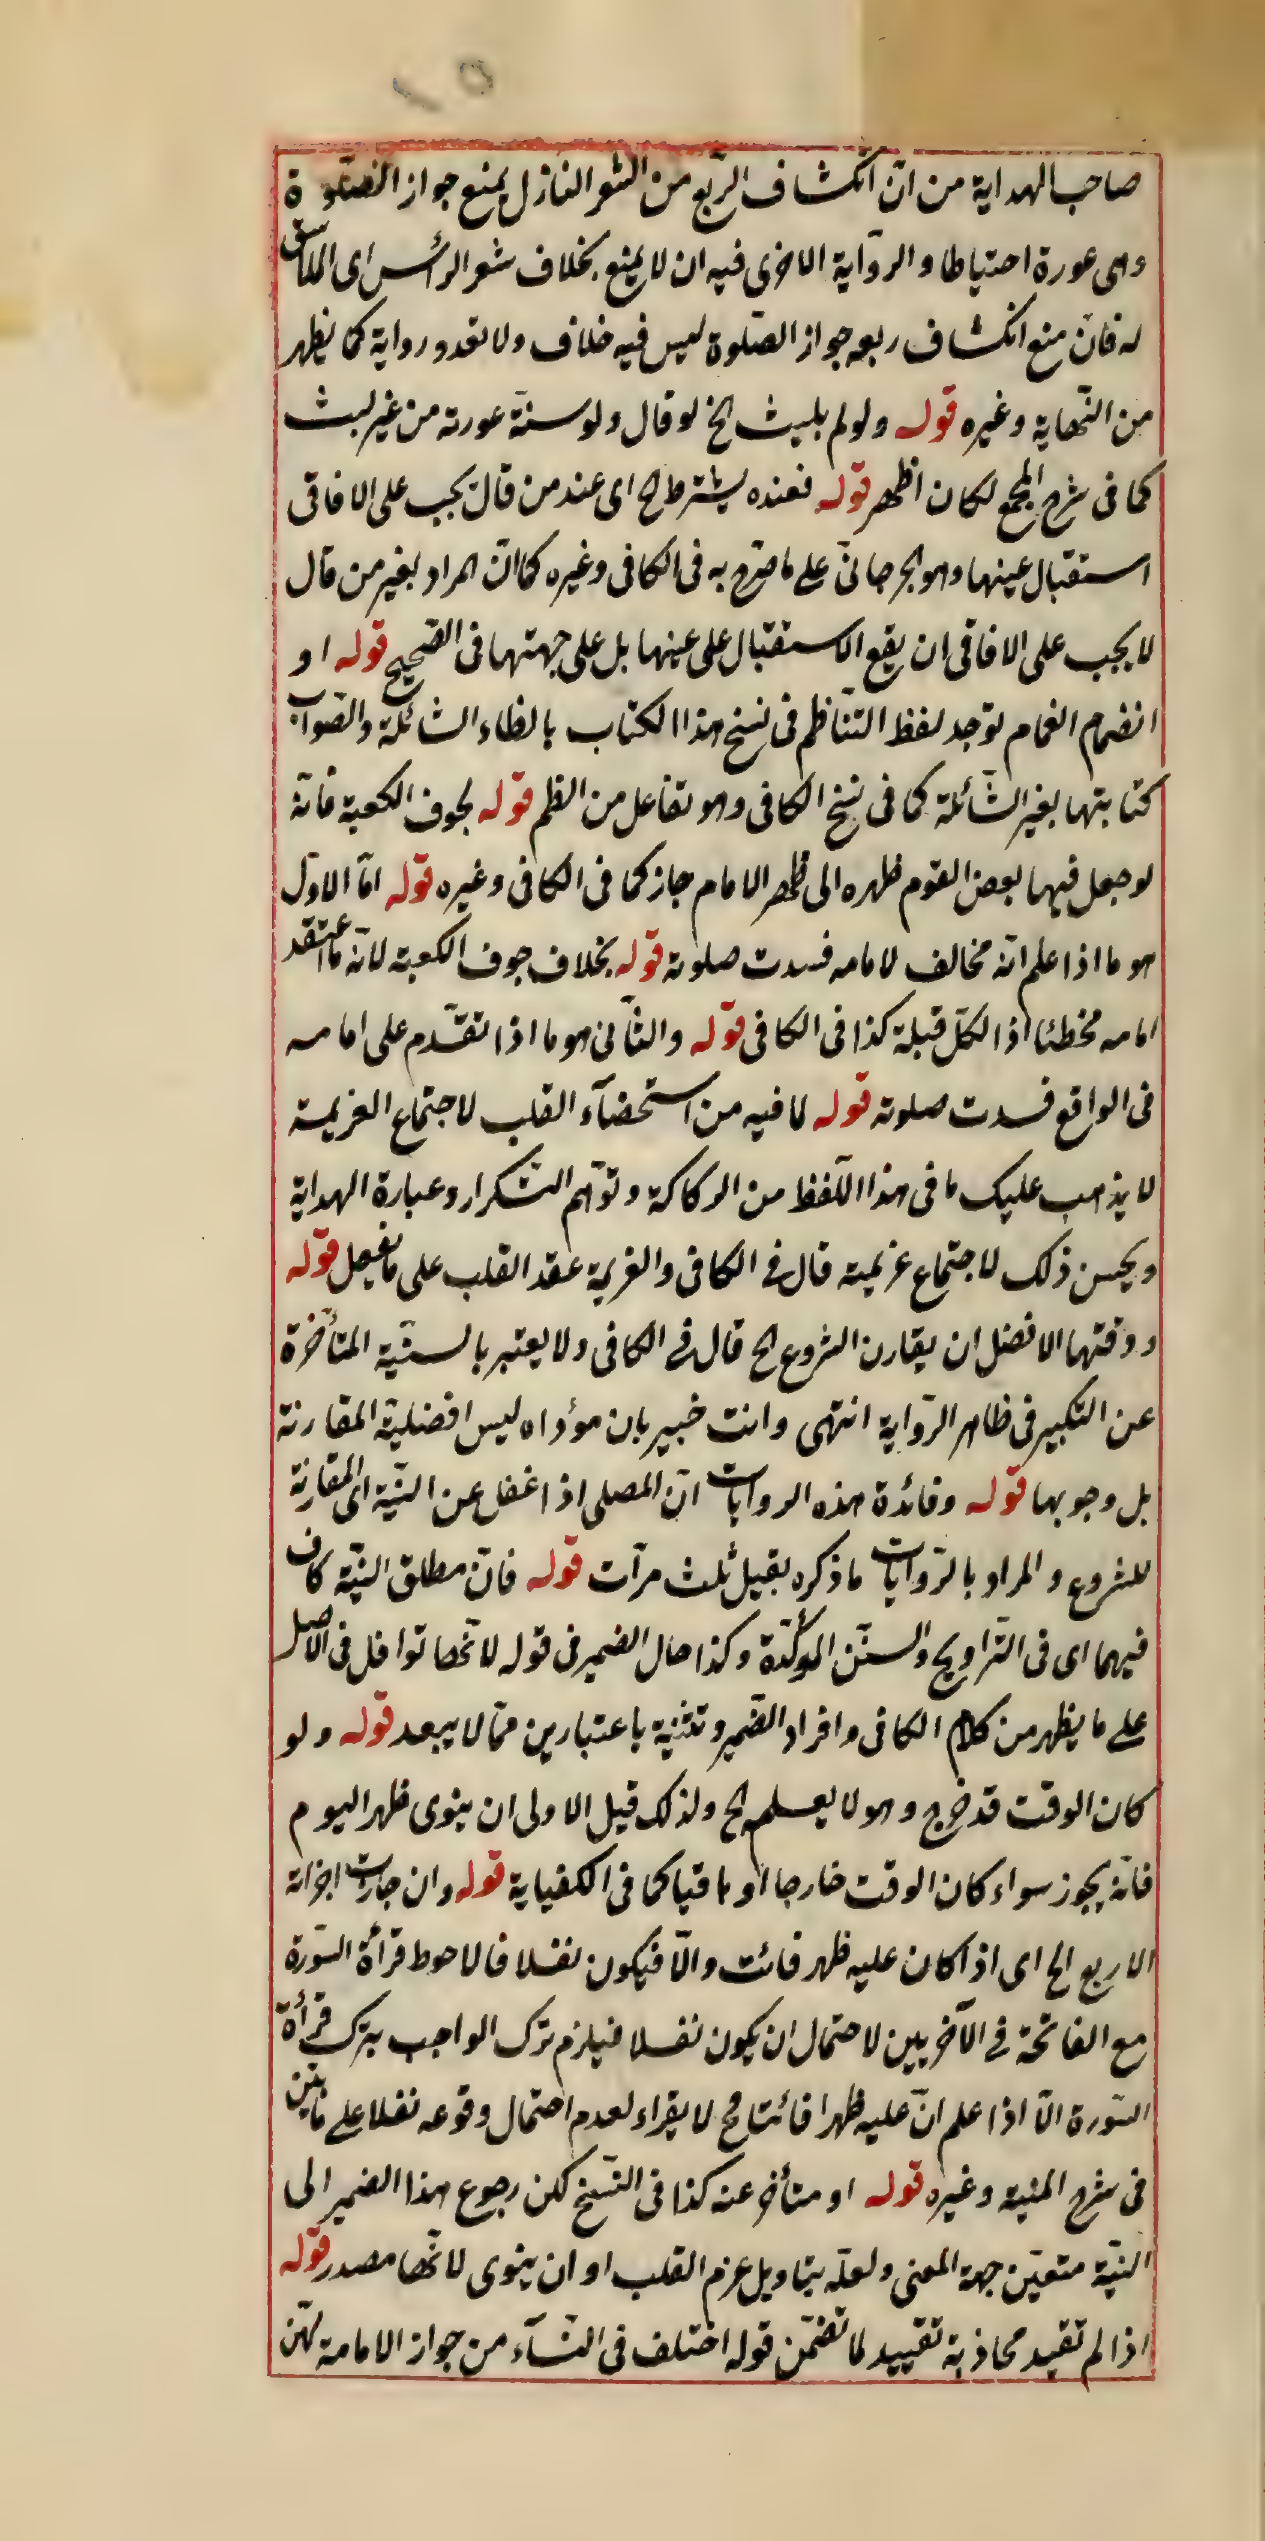 صاحب الهداية من انّ انكشاف الرّبع من الشعر النازل يمنع جواز الصّلوة
وهى عورة احتياطا والروّاية الاخرى فيه ان لا يمنع بخلاف شعر الرأس اى الملاصق
له فانّ منع انكشاف ربعه جواز الصّلوة ليس فيه خلاف ولا تعدد رواية كما يظهر
من النّهاية وغيره قوله ولو لم يلبث الخ لو قال ولو ستر عورته من غير لبث
كما فى شرح المجمع لكان اظهر قوله فعنده يشترط الخ اى عند من قال يجب على الافاقى
استقبال عينها وهو الجرجانىّ على ما صرّح به فى الكافى وغيره كما انّ المراد بغير من قال
لا يجب على الافاقى ان يقع الاستقبال على عينها بل على جهتها فى الصّحيح قوله او
انضمام الغمام توجد لفظ التّناظم فى نسخ هذا الكتاب بالظاء الشائلة والصّواب
كتابتها بغير الشّائلة كما فى نسخ الكافى وهو تفاعل من الظلم قوله لجوف الكعبة فانّه
لو جعل فيها بعض القوم ظهره الى ظهر الامام جاز كما فى الكافى وغيره قوله امّا الاوّل
هو ما اذا علم انّه مخالف لامامه فسدت صلوته قوله بخلاف جوف الكعبة لانّه ما اعتقد
امامه مخطئا اذ الكلّ قبلة كذا فى الكافى قوله والثّانى هو ما اذا تقدّم على امامه
فى الواقع فسدت صلوته قوله لما فيه من استحضآء القلب لاجتماع العزيمة
لا يذهب عليك ما فى هذا اللّفظ من الركاكة وتوّهم التّكرار وعبارة الهداية
ويحسن ذلك لاجتماع عزيمته قال فى الكافى والعزيمة عقد القلب على ما يفعل قوله
ووقتها الافضل ان يقارن الشروع الخ قال فى الكافى ولا يعتبر بالنيّة المتأخّرة
عن التكبير فى ظاهر الرّواية انتهى وانت خبير بان مؤداه ليس افضليّة المقارنة
بل وجوبها قوله وفائدة هذه الروايات انّ المصلى اذا غفل عن النيّة اى المقارنة
للشروع والمراد بالرّوايات ما ذكره بقبيل ثلث مرّات قوله فانّ مطلق النيّة كاف
فيهما اى فى التّراويح والسنن المؤكّدة وكذا حال الضمير فى قوله لانّها نوافل فى الاصل
على ما يظهر من كلام الكافى وافراد الضّمير وتثنية باعتبارين ممّا لا يبعد قوله ولو
كان الوقت قد خرج وهو لا يعلم الخ ولذلك قيل الاولى ان ينوى ظهر اليوم
فانّه يجوز سواء كان الوقت خارجا او باقيا كما فى الكفاية قوله وان جازت اجزاته
الاربع الخ اى اذا كان عليه ظهر فائت والّا فيكون نفلا فالاحوط قرأة السّورة
مع الفاتحة فى الاخريين لاحتمال ان يكون نفلا فيلزم ترك الواجب بترك قرأة
السّورة الّا اذا علم انّ عليه ظهرا فائتا فح لا يقراء لعدم احتمال وقوعه نفلا على ما بيّن
فى شرح المنية وغيره قوله او متأخر عنه كذا فى النّسخ لكن رجوع هذا الضمير الى
النيّة متعيّن جهة المعنى ولعلّه بتاويل عزم القلب او ان ينوى لانّها مصدر قوله
اذا لم تقيد محاذية تقييد لما تضمّن قوله اختلف فى النّسآء من جواز الامامة لهّن